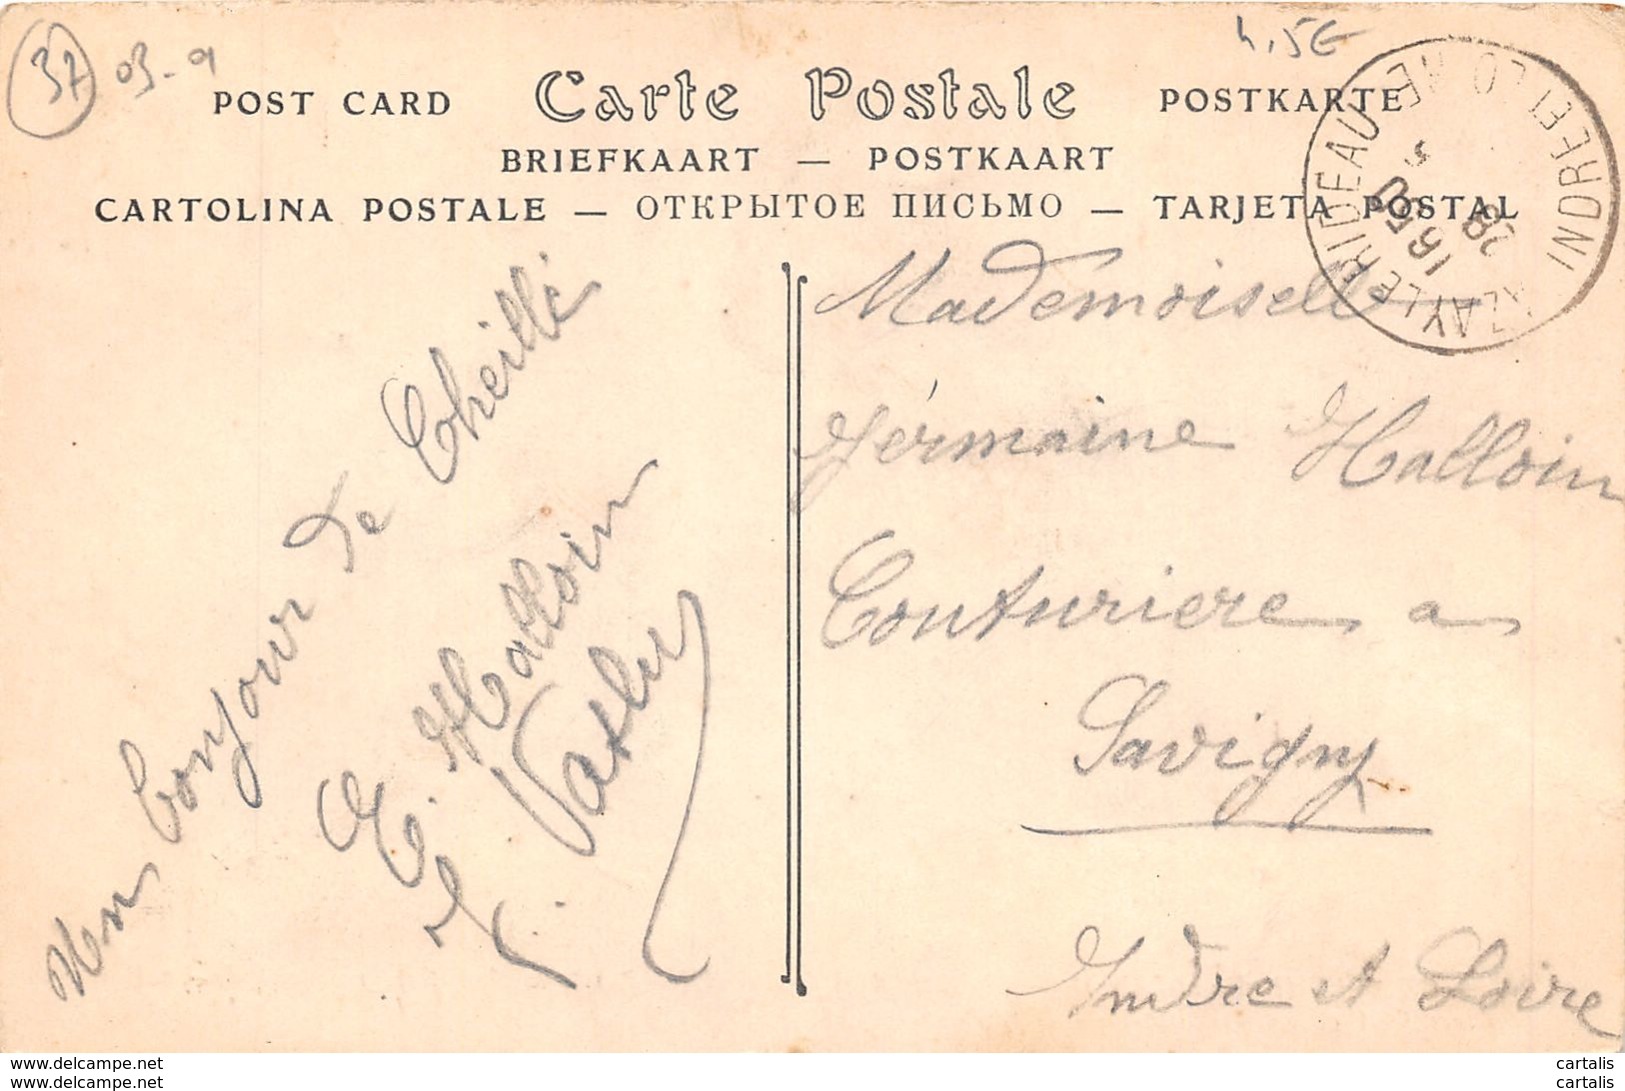 37
03-9
4,5€
POST CARD Carte Postale POSTKARTE
BRIEFKAART — POSTKAART
CARTOLINA POSTALE — ОТКРЫТОЕ ПИСЬМО — TARJETA POSTAL
AZAY LE RIDEAU
INDRE ET LO
1650
28
Mademoiselle
Germaine Halloin
Couturiere a
Savigny
Indre et Loire
Mon bonjour de Cheillé
E. Halloin
cartalis
cartalis